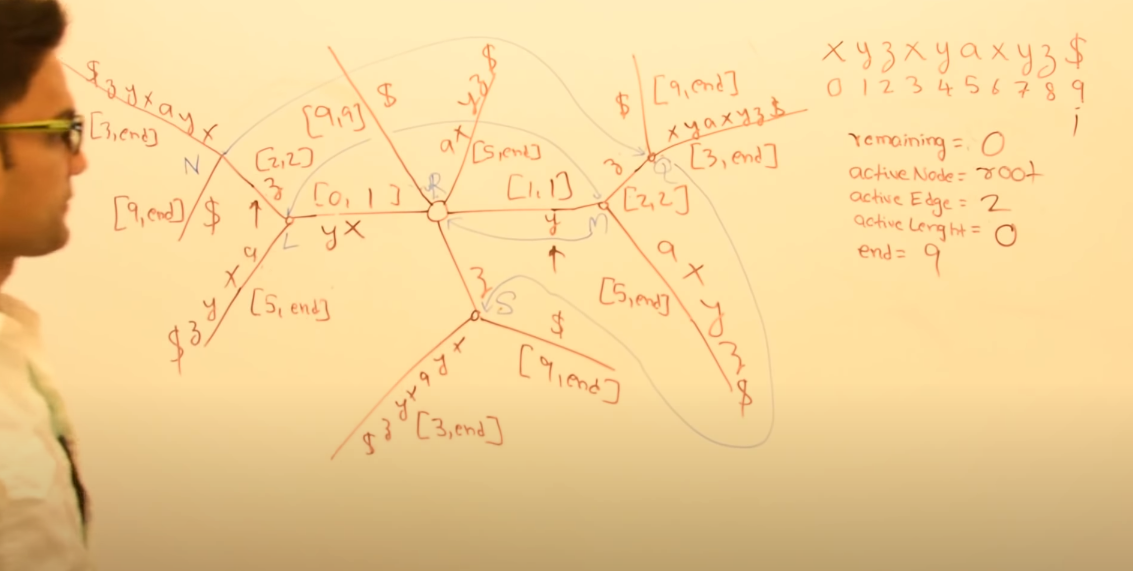 x y z x y a x y z $
0 1 2 3 4 5 6 7 8 9
i
remaining = 0
activeNode = root
active Edge = 2
active Lenght = 0
end = 9
$ z y x a y x
[3,end]
N
[9,end]
$
[2,2]
z
[0, 1]
y x
L
a
x
y
z
$
[5, end]
[9,9]
$
$
y z
a x
[5,end]
R
[1,1]
y
M
z
[2,2]
$
[9,end]
x y a x y z $
[3, end]
[5,end]
a
x
y
z
$
z
S
$
[9,end]
$ z y x a y x
[3,end]